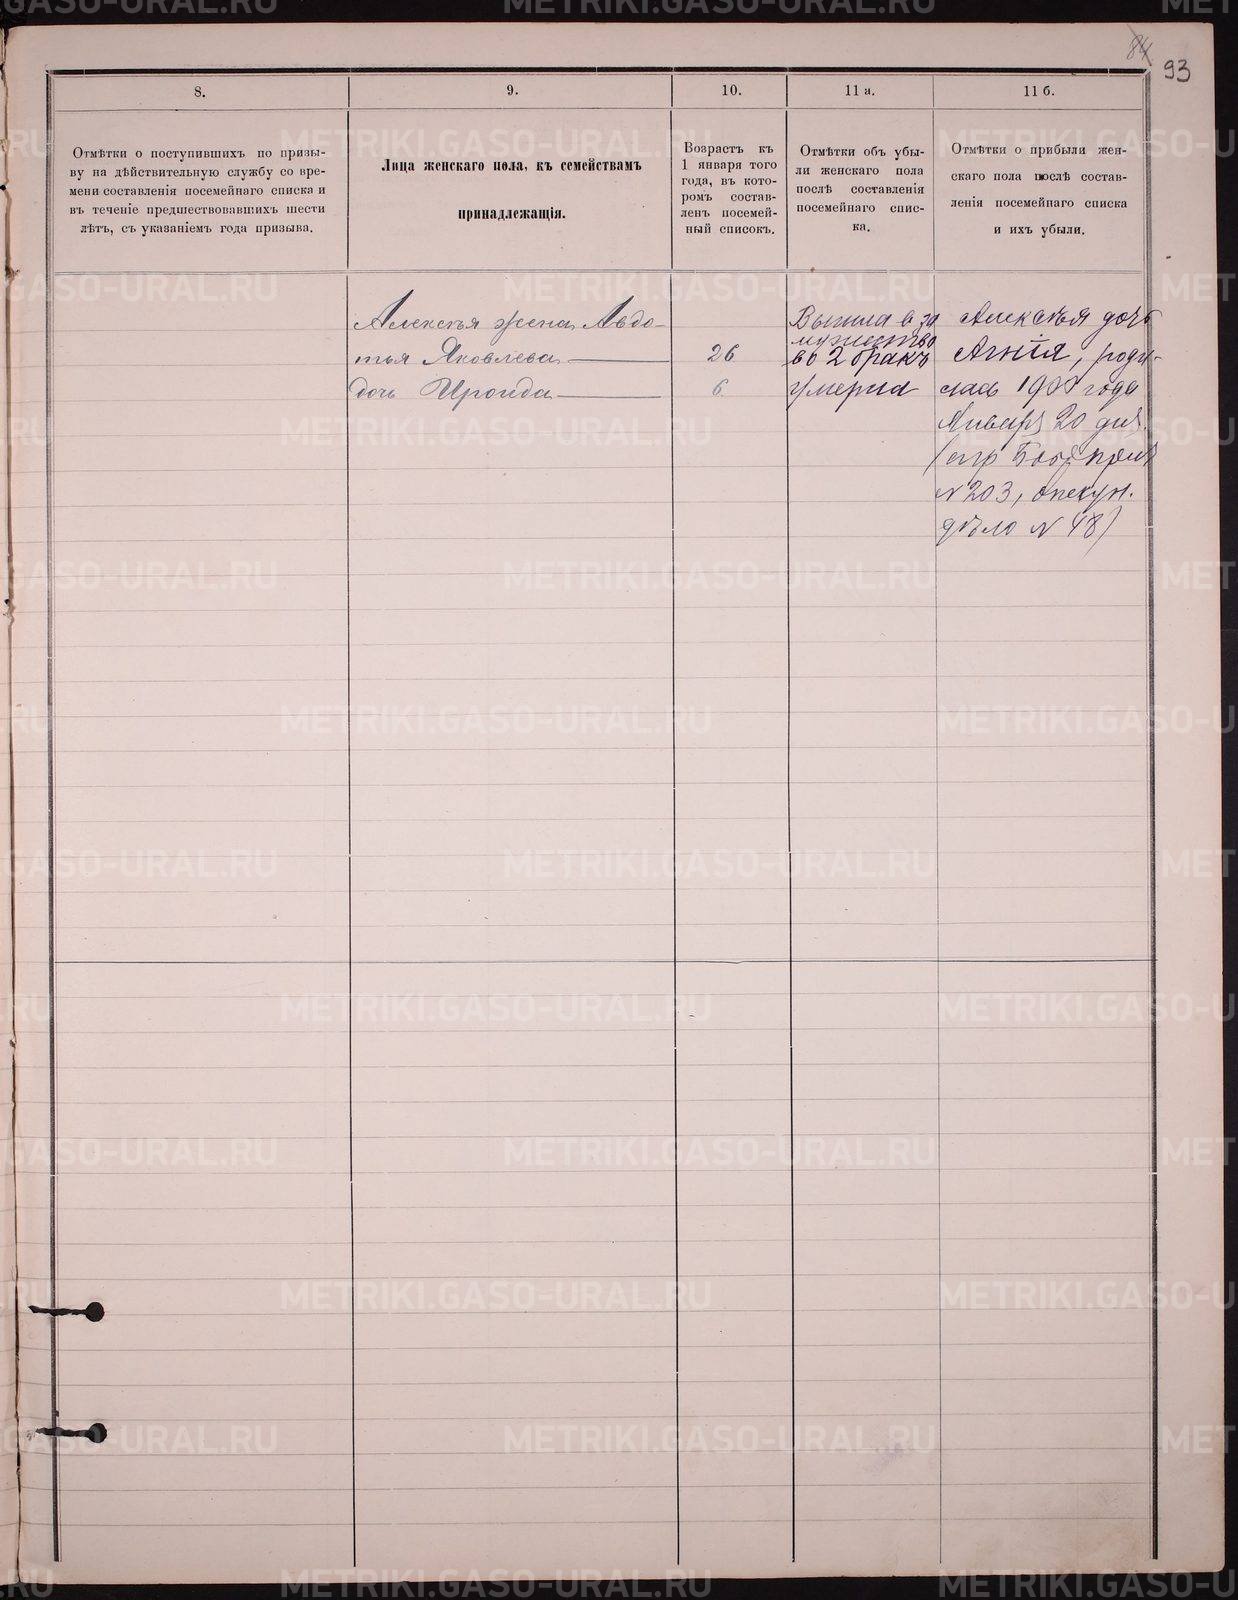 84
93
8.
9.
10.
11 а.
11 б.
Отмѣтки о поступившихъ по призы-
ву на дѣйствительную службу со вре-
мени составленія посемейнаго списка и
въ теченіе предшествовавшихъ шести
лѣтъ, съ указаніемъ года призыва.
Лица женскаго пола, къ семействамъ
принадлежащія.
Возрастъ къ
1 января того
года, въ кото-
ромъ состав-
ленъ посемей-
ный списокъ.
Отмѣтки объ убы-
ли женскаго пола
послѣ составленія
посемейнаго спис-
ка.
Отмѣтки о прибыли жен-
скаго пола послѣ состав-
ленія посемейнаго списка
и ихъ убыли.
Алексѣя жена Авдо-
тья Яковлева
дочь Ироида
26
6
Вышла в за
мужество
во 2 бракъ
умерла
Алексѣя дочь
Агнія, роди-
лась 1900 года
Января 20 дня
N 203, опекун.
дѣло N 48)
METRIKI.GASO-URAL.RU